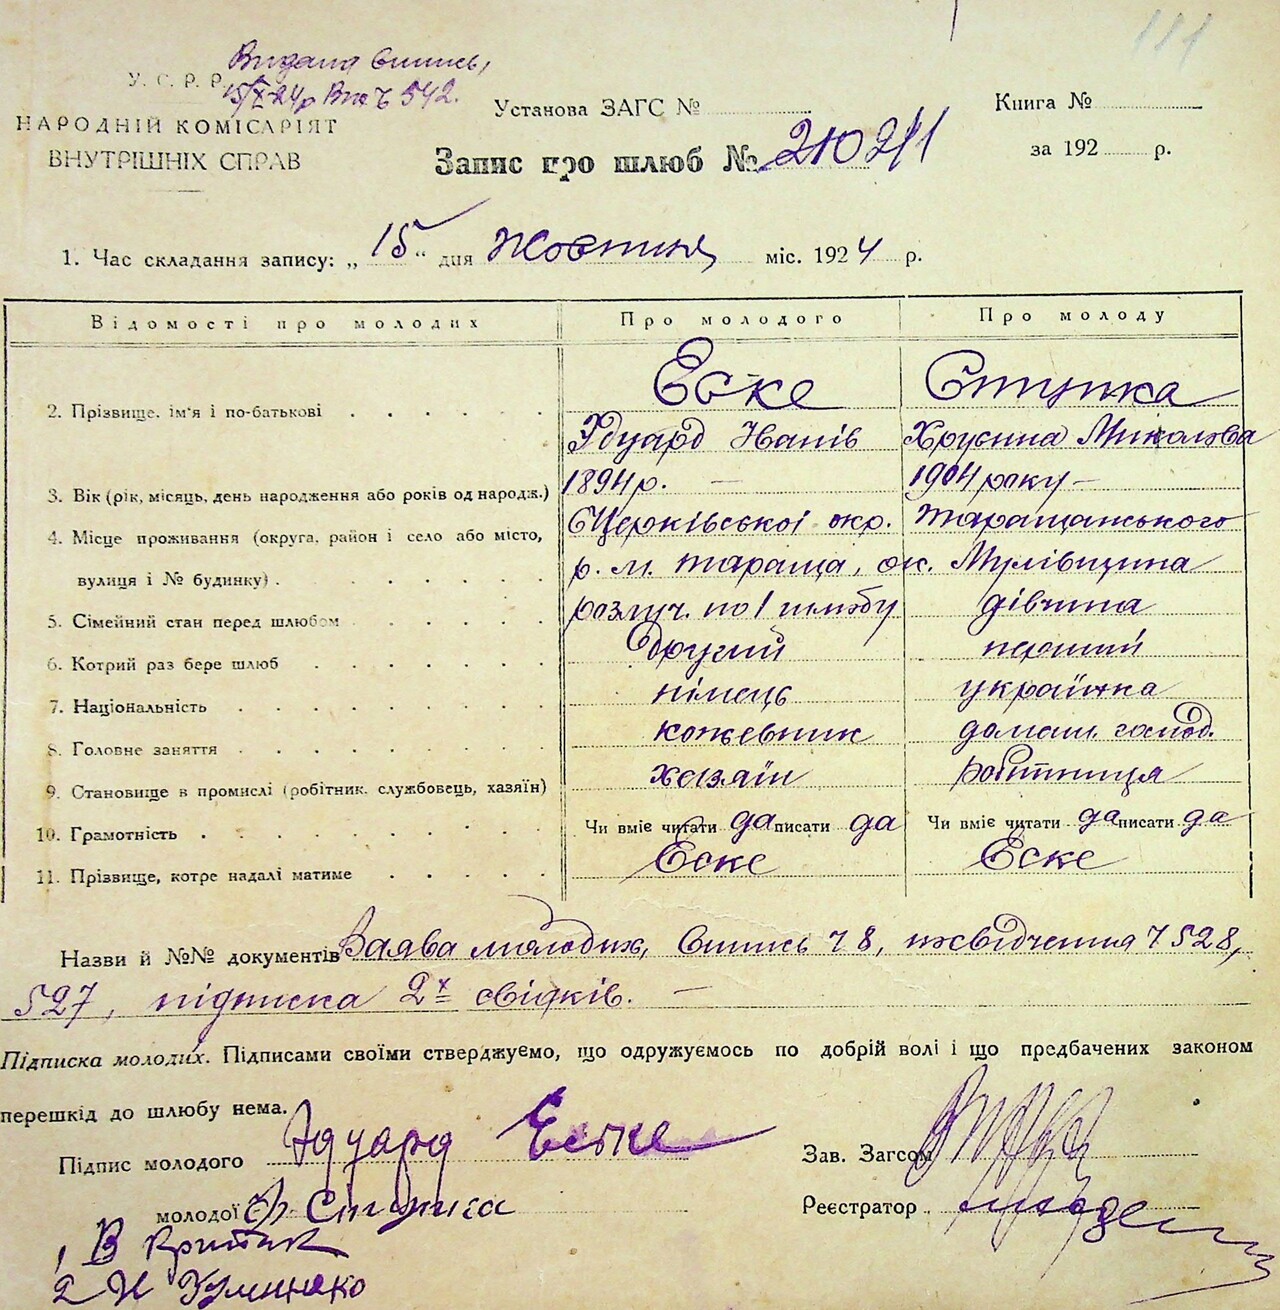 111
Видана випись,
15/X-24р Вих Ч 542.
У. С. Р. Р.
НАРОДНІЙ КОМІСАРІЯТ
ВНУТРІШНІХ СПРАВ
Установа ЗАГС №
Книга №
за 192 р.
Запис про шлюб №
1. Час складання запису: „ 15 “ дня Жовтня міс. 1924 р.
Відомості про молодих Про молодого Про молоду
2. Прізвище, ім'я і по-батькові Еске Ступка
Едуард Іванів Хрусина Миколова
3. Вік (рік, місяць, день народження або років од народж.) 1894 р. — 1904 року —
4. Місце проживання (округа, район і село або місто, БЦерківської окр. Таращанського
вулиця і № будинку) р. м. Тараща, ок. Мулівщина
5. Сімейний стан перед шлюбом розлуч. по 1 шлюбу дівчина
6. Котрий раз бере шлюб другий перший
7. Національність німець українка
8. Головне заняття кожевник домаш. господ.
9. Становище в промислі (робітник, службовець, хазяїн) хазяїн робітниця
10. Грамотність Чи вміє читати да писати да Чи вміє читати да писати да
11. Прізвище, котре надалі матиме Еске Еске
Назви й №№ документів Заява молодих, випись Ч 8, посвідчення Ч 528,
527, підписка 2х свідків. —
Підписка молодих. Підписами своїми стверджуємо, що одружуємось по добрій волі і що предбачених законом
перешкід до шлюбу нема.
Підпис молодого Эдуард Еске
Зав. Загсом
молодої
Реєстратор
1 В
2 И